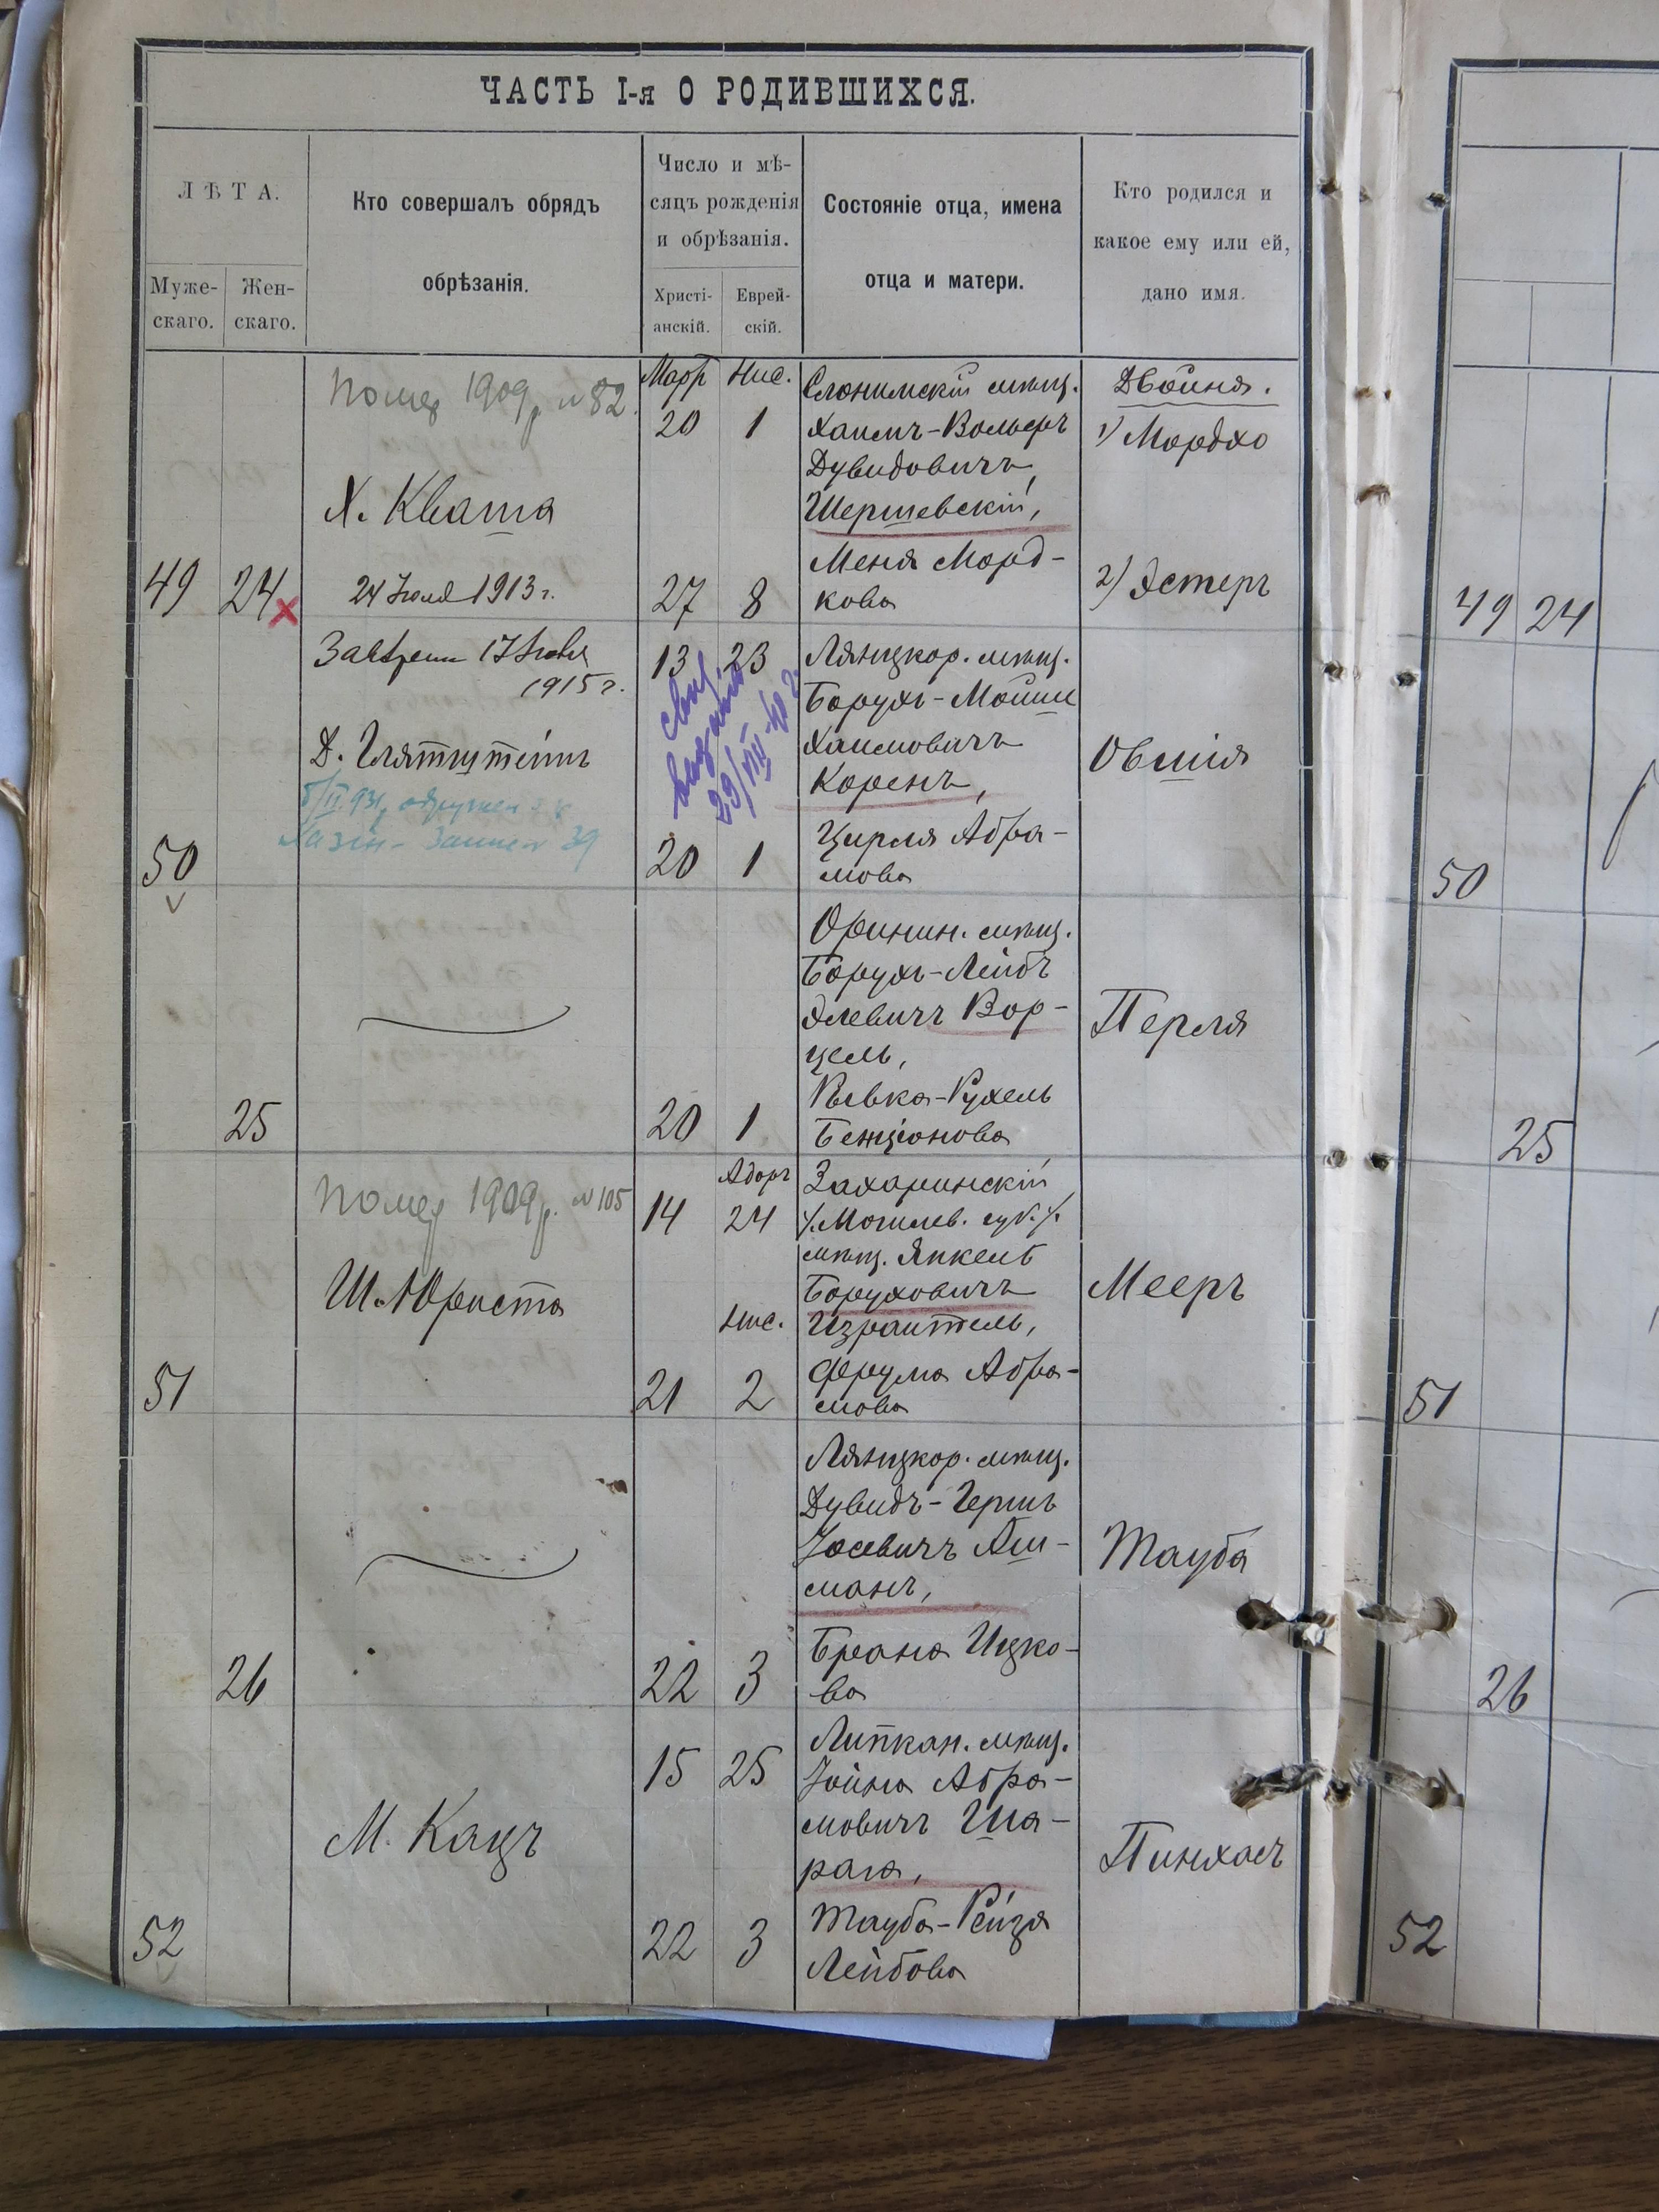 ЧАСТЬ I-я О РОДИВШИХСЯ.
ЛѢТА.
Муже-
скаго.
Жен-
скаго.
Кто совершалъ обрядъ
обрѣзанія.
Число и мѣ-
сяцъ рожденія
и обрѣзанія.
Христі-
анскій.
Еврей-
скій.
Состояніе отца, имена
отца и матери.
Кто родился и
какое ему или ей,
дано имя.
49 24
Помер 1909 р. № 82.
Х. Кваша
24 Іюля 1913 г.
Март Нис.
20 1
27 8
Слонимскій мѣщ.
Хаимъ-Вольфъ
Дувидовичъ
Шершевскій,
Меня Морд-
кова
Двойня.
1) Мордхо
2) Эстеръ
50
17
1915 г.
Д. Глятштейнъ
13 23
20 1
Лянцкор. мѣщ.
Борухъ-Мойше
Хаимовичъ
Коренъ,
Цирля Абра-
мова
Овшія
25
20 1
Оринин. мѣщ.
Борухъ-Лейбъ
Элевичъ Вор-
цель,
Ривка-Рухель
Бенціонова
Перля
51
Помер 1909 р. № 105
Ш. Юриста
Адаръ
14 24
Нис.
21 2
Захаринскій
/.Могилев. губ./.
мѣщ. Янкель
Боруховичъ
Израитель,
Фрума Абра-
мова
Мееръ
26
22 3
Лянцкор. мѣщ.
Дувидъ-Гершъ
Іосевичъ Аш-
манъ,
Брана Ицко-
ва
Тауба
52
М. Кацъ
15 25
22 3
Липкан. мѣщ.
Іойна Абра-
мовичъ Ша-
рага,
Тауба-Рейза
Лейбова
Пинхасъ
49 24
50
25
51
26
52